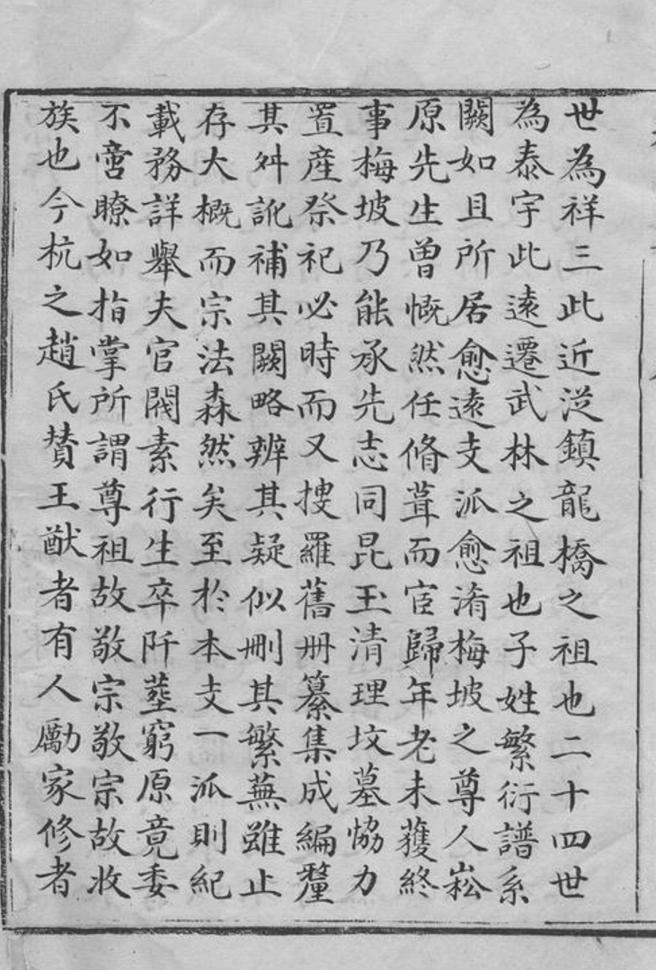 世為祥三此近從鎮龍橋之祖也二十四世
為泰宇此遠遷武林之祖也子姓繁衍譜系
闕如且所居愈遠支派愈淆梅坡之尊人崧
原先生曾慨然任脩葺而宦歸年老未獲終
事梅坡乃能承先志同昆玉清理坟墓恊力
置産祭祀必時而又搜羅舊册纂集成編釐
其舛訛補其闕略辨其疑似刪其繁蕪雖止
存大概而宗法森然矣至於本支一派則紀
載務詳舉夫官閥素行生卒阡塋窮原竟委
不啻瞭如指掌所謂尊祖故敬宗敬宗故收
族也今杭之趙氏賛王猷者有人勵家修者